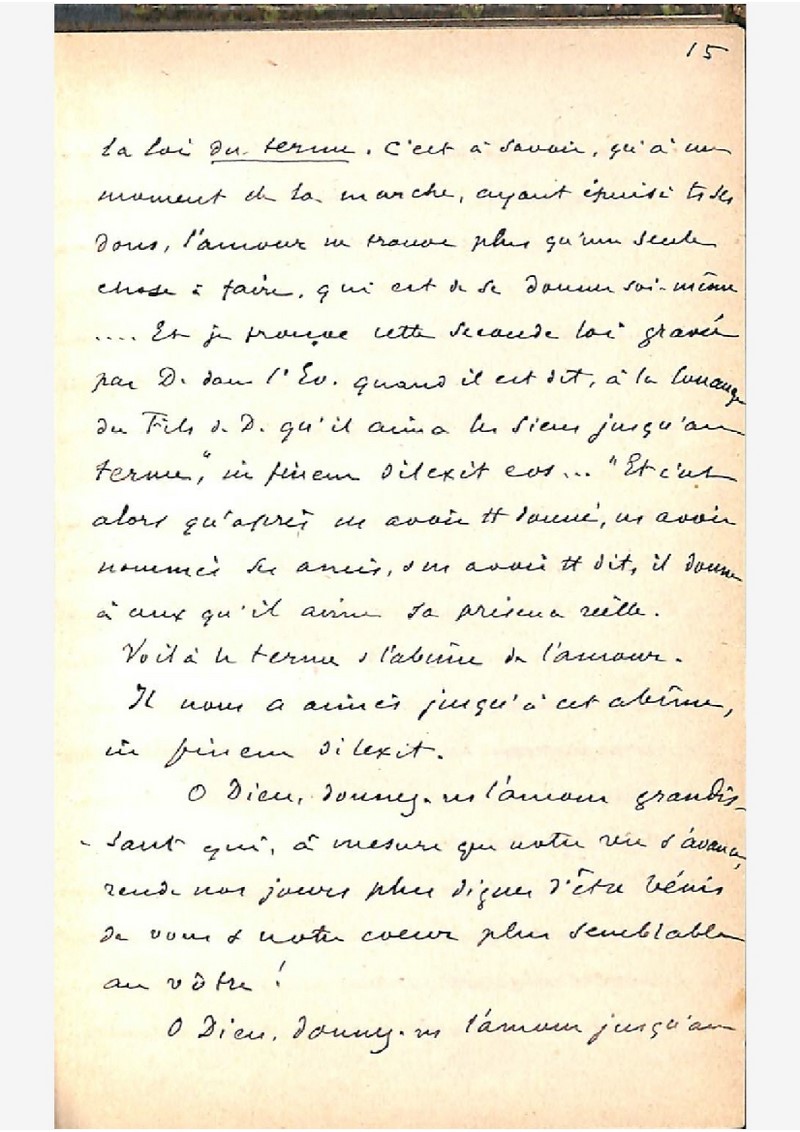 15
la loi du terme. C'est à savoir, qu'à un
moment de la marche, ayant épuisé ts ses
dons, l'amour ne trouve plus qu'une seule
chose à faire, qui est de se donner soi-même
.... Et je trouve cette seconde loi gravée
par D. dans l'Ev. quand il est dit, à la louange
du Fils de D. qu'il aima les siens jusqu'au
terme," in finem dilexit eos... "Et c'est
alors qu'après ns avoir tt donné, ns avoir
nommés ses amis, ns avoir tt dit, il donne
à ceux qu'il aime sa présence réelle.
Voilà le terme & l'abîme de l'amour.
Il nous a aimés jusqu'à cet abîme,
in finem dilexit.
O Dieu, donnez-ns l'amour grandis-
-sant qui, à mesure que notre vie s'avance,
rende nos jours plus dignes d'être bénis
de vous & notre coeur plus semblable
au vôtre !
O Dieu, donnez-ns l'amour jusqu'au